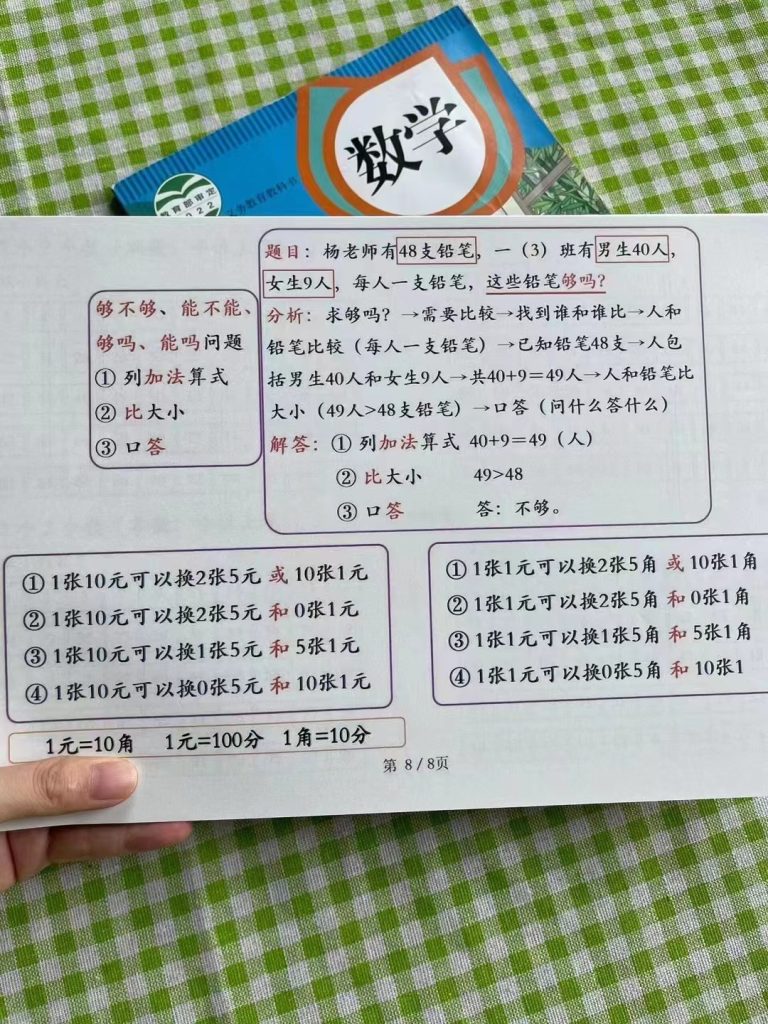 数学
义务教育教科书
教育部审定
2022
够不够、能不能、
够吗、能吗问题
① 列加法算式
② 比大小
③ 口答
题目：杨老师有48支铅笔，一（3）班有男生40人，
女生9人，每人一支铅笔，这些铅笔够吗？
分析：求够吗？→需要比较→找到谁和谁比→人和
铅笔比较（每人一支铅笔）→已知铅笔48支→人包
括男生40人和女生9人→共40+9=49人→人和铅笔比
大小（49人>48支铅笔）→口答（问什么答什么）
解答：① 列加法算式 40+9=49（人）
② 比大小 49>48
③ 口答 答：不够。
① 1张10元可以换2张5元 或 10张1元
② 1张10元可以换2张5元 和 0张1元
③ 1张10元可以换1张5元 和 5张1元
④ 1张10元可以换0张5元 和 10张1元
① 1张1元可以换2张5角 或 10张1角
② 1张1元可以换2张5角 和 0张1角
③ 1张1元可以换1张5角 和 5张1角
④ 1张1元可以换0张5角 和 10张1
1元=10角 1元=100分 1角=10分
第 8 / 8页